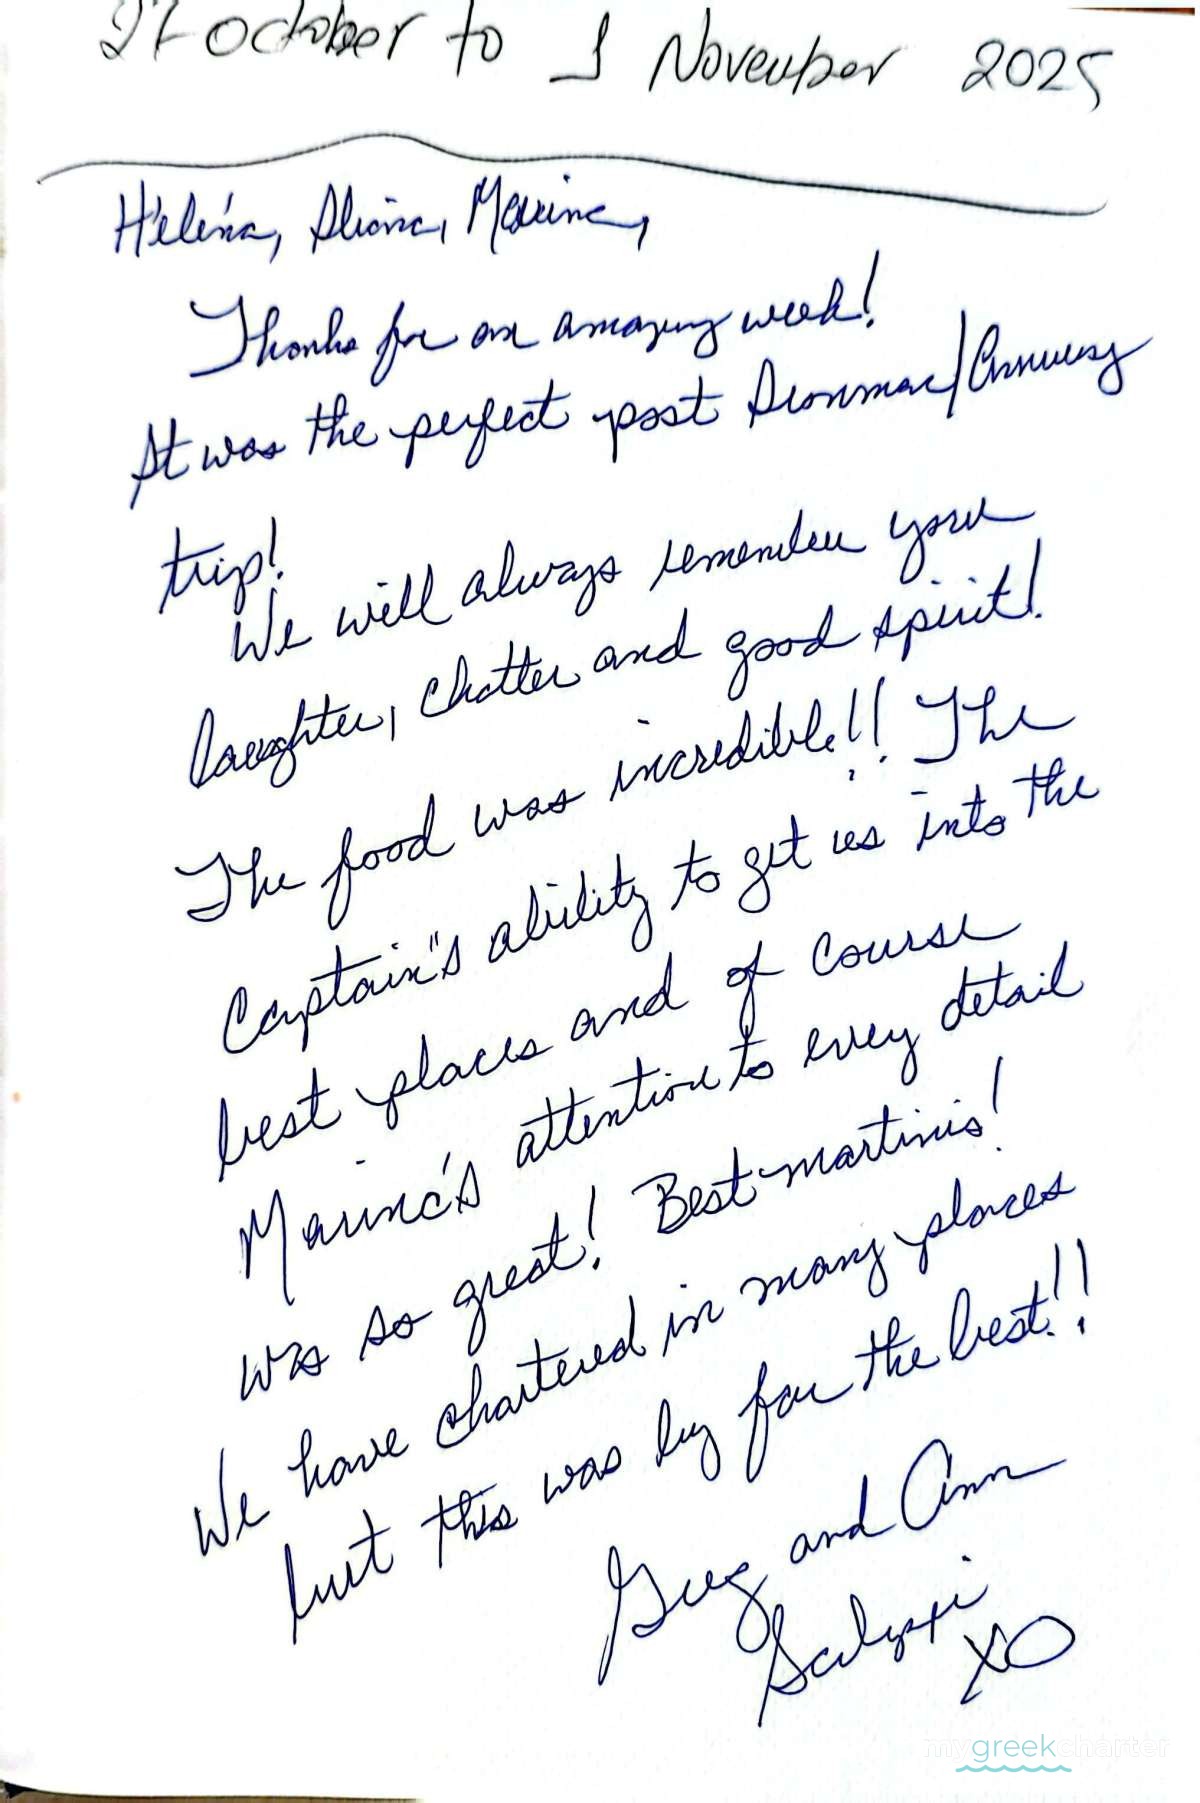 27 October to 1 November 2025
Heléna, Marina,
Thanks for an amazing week!
It was the perfect post
trip!
We will always remember your
laughter, chatter and good spirit!
The food was incredible!! The
Captain"s ability to get us into the
best places and of course
Marina's attention to every detail
was so great! Best martinis!
We have chartered in many places
but this was by far the best!!
Greg and Ann
XO
mygreekcharter